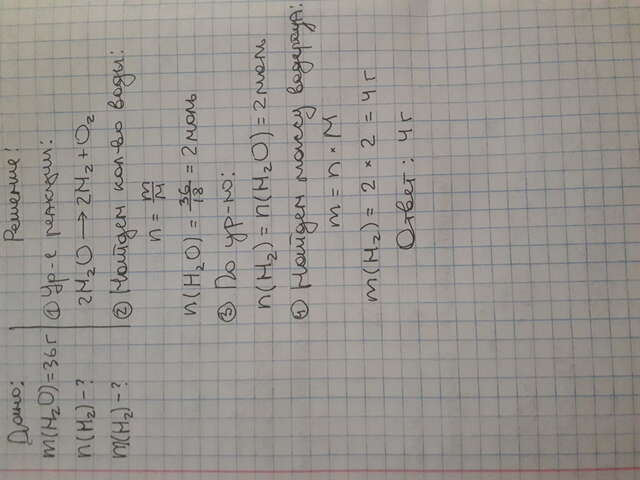 Дано:
m(H₂O)=36г
n(H₂)-?
m(H₂)-?
Решение:
① Ур-е реакции:
2H₂O → 2H₂ + O₂
② Найдем кол-во воды:
n = m/M
n(H₂O) = 36/18 = 2 моль
③ По ур-ю:
n(H₂) = n(H₂O) = 2 моль
④ Найдем массу водорода:
m = n * M
m(H₂) = 2 * 2 = 4 г
Ответ: 4 г